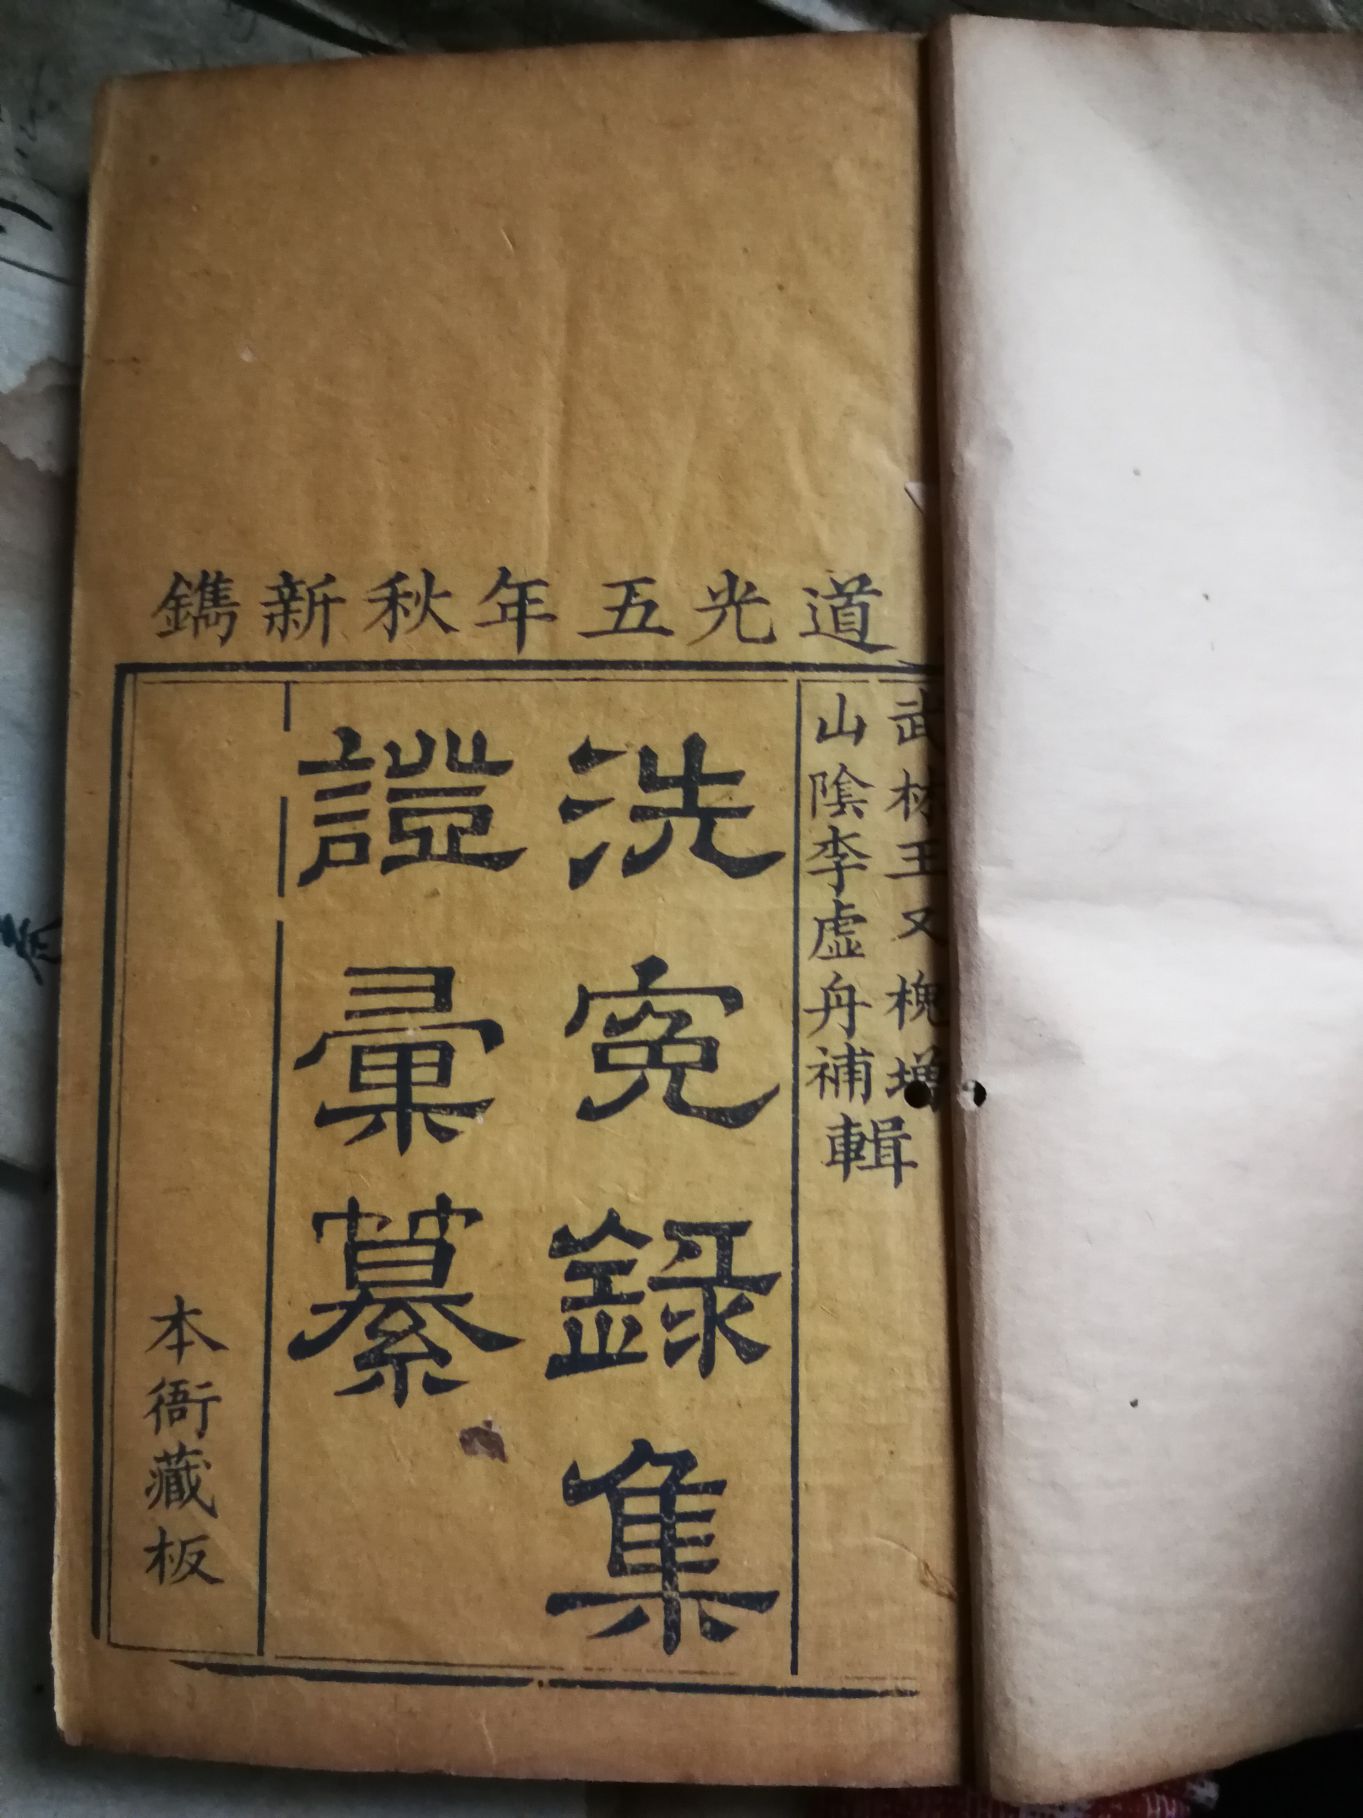 道光五年秋新鐫
武林王又槐增
山陰李虛舟補
輯
洗冤錄集
證彙纂
本衙藏板